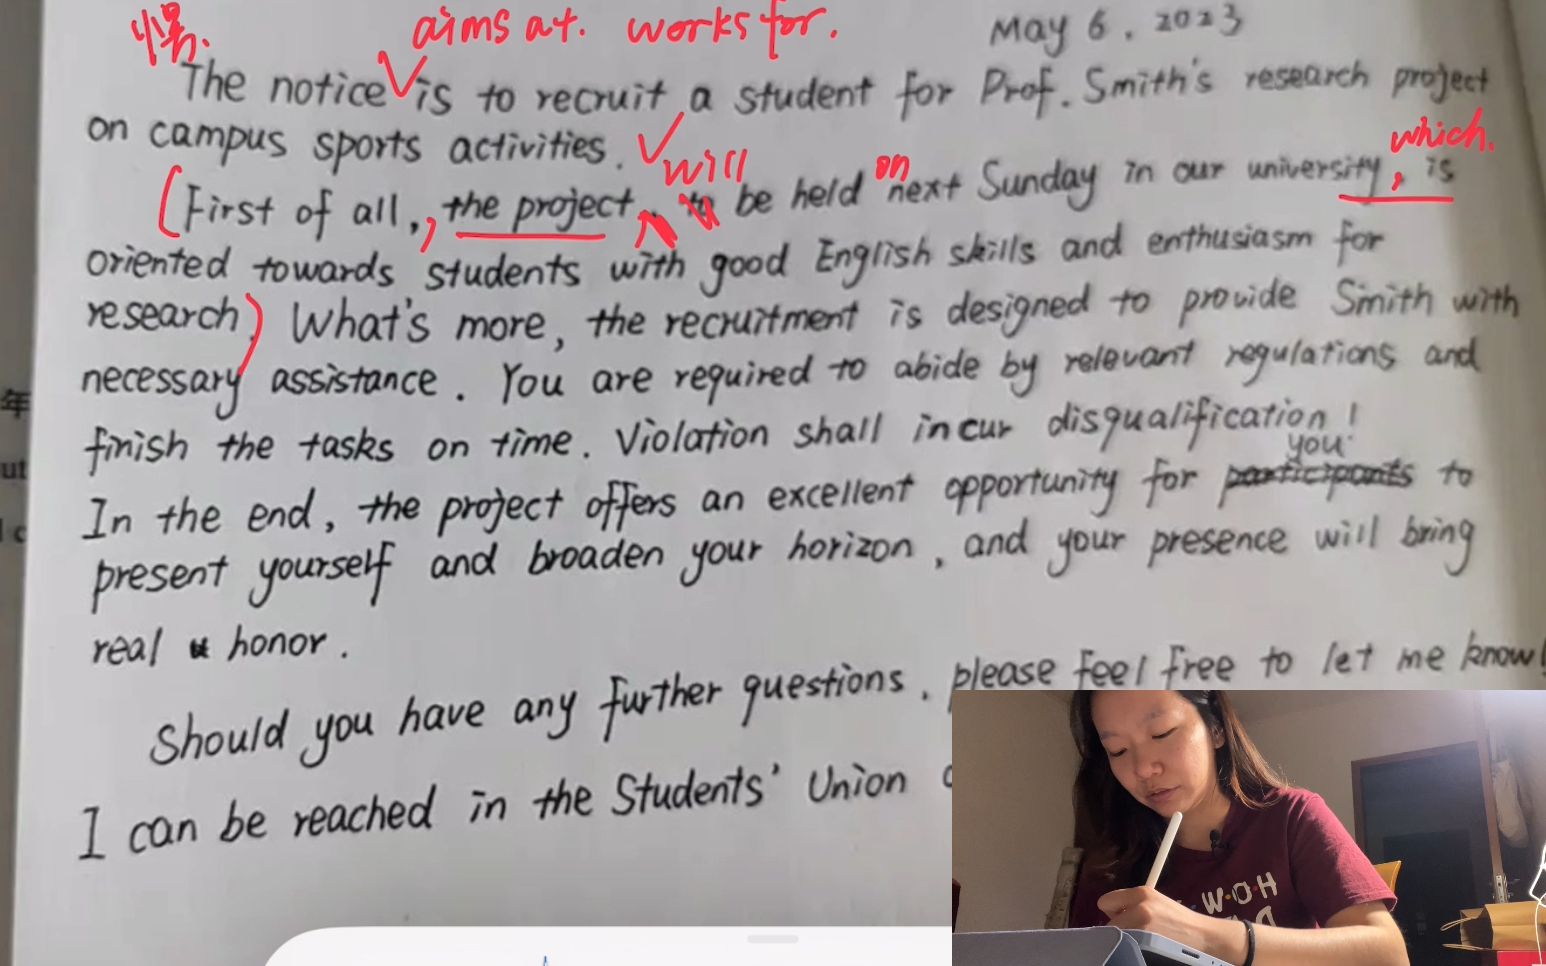 aims at. works for.
May 6, 2023
The notice is to recruit a student for Prof. Smith's research project
on campus sports activities.
will on which.
First of all, the project, be held next Sunday in our university, is
oriented towards students with good English skills and enthusiasm for
research. What's more, the recruitment is designed to provide Smith with
necessary assistance. You are required to abide by relevant regulations and
finish the tasks on time. Violation shall incur disqualification!
you
In the end, the project offers an excellent opportunity for participants to
present yourself and broaden your horizon, and your presence will bring
real honor.
Should you have any further questions, please feel free to let me know!
I can be reached in the Students' Union
年
ut
H·O·W